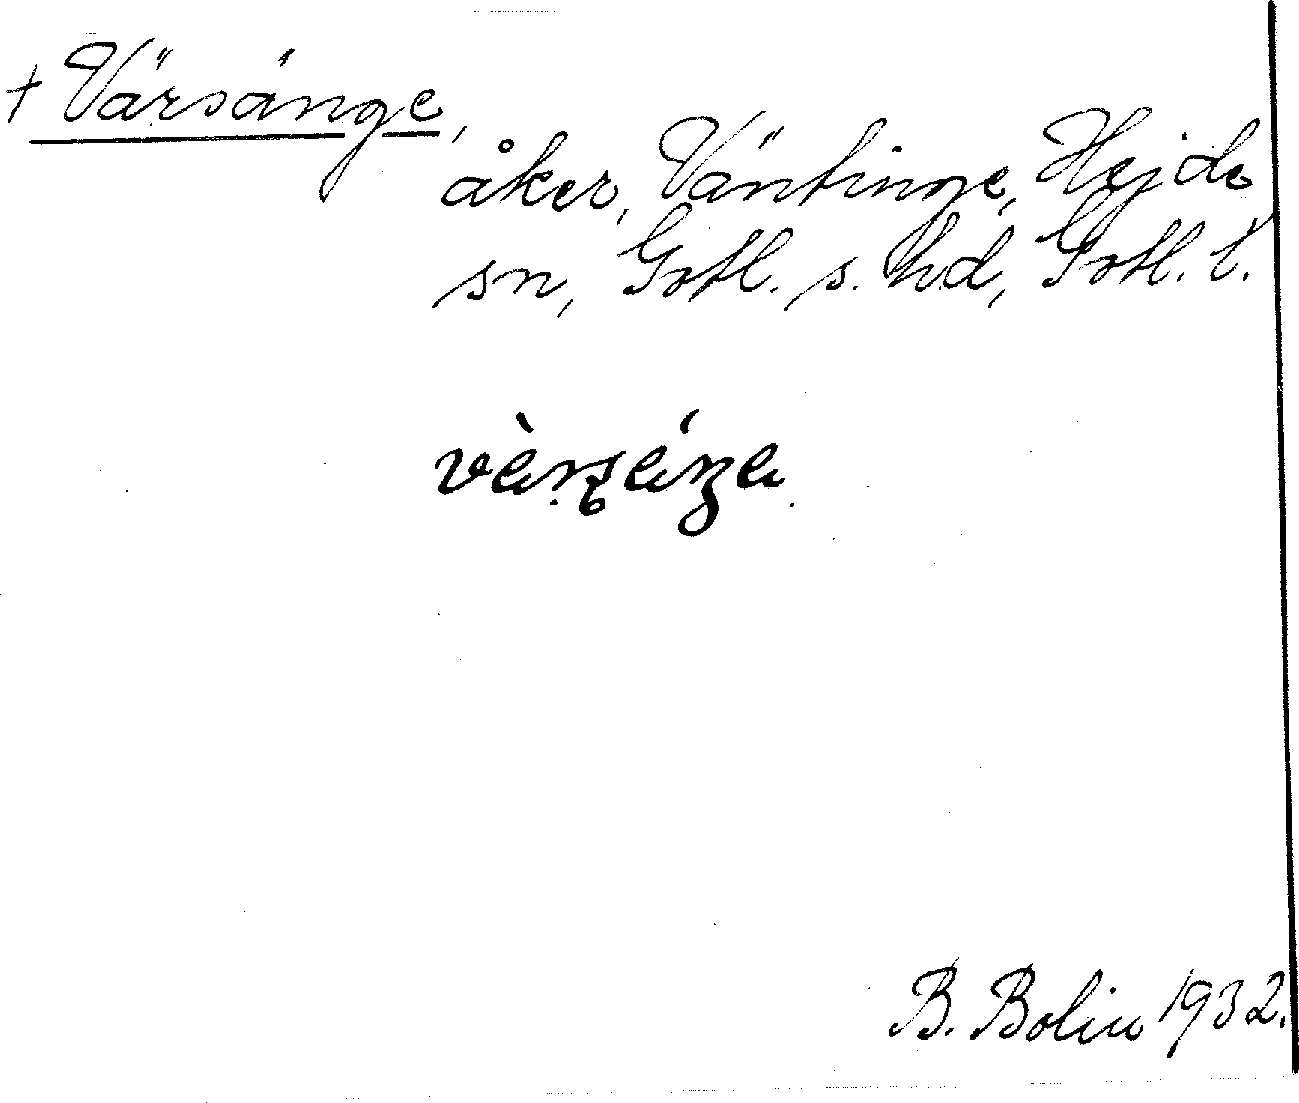 + Värsänge,
åker, Väntinge, Hejde
sn, Gotl. s. hd, Gotl. l.
B. Bolin 1932.